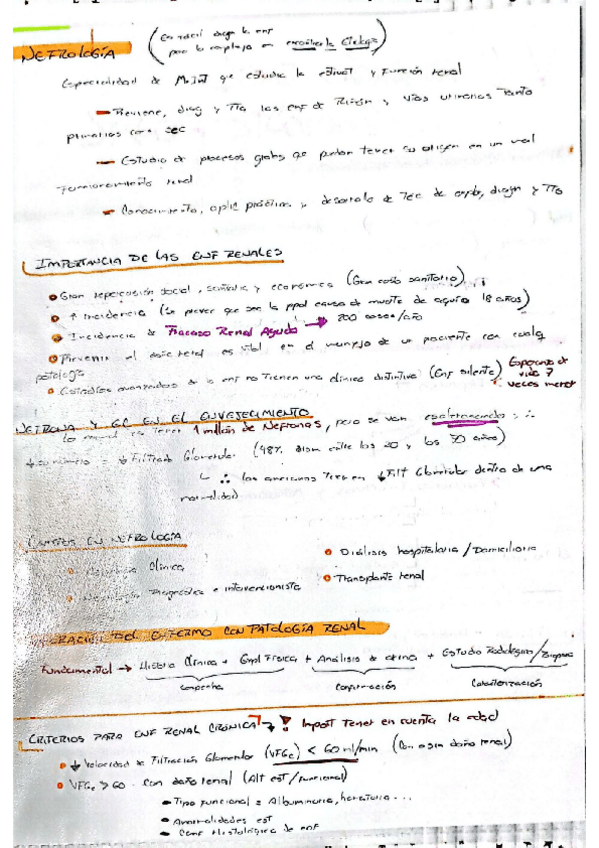 NEFROLOGÍA
Especialidad de M. Int que estudia la estruct y Función renal
- Previene, diag y TTo las enf de Riñón y vías urinarias Tanto
primarias como sec
- Estudio de procesos grales que puedan tener su origen en un mal
Funcionamiento renal
- Conocimiento, aplic práctica y desarrollo de Tec de explo, diagn y TTo
IMPORTANCIA DE LAS ENF RENALES
Gran repercusión social, sanitaria y económica (Gran coste sanitario)
↑ Incidencia (Se prevee que sea la ppal causa de muerte de aquí a 18 años)
Incidencia de Fracaso Renal Agudo → 200 casos/año
Prevenir el daño renal es vital en el manejo de un paciente con cualq
patología
Estadios avanzados de la enf no Tienen una clínica distintiva (Enf silente)
Esperanza de
vida 7
veces menor
NEFRONA Y EN EL ENVEJECIMIENTO
1 millón de Nefronas, pero se van ∴
↓ su número = ↓ Filtrado Glomerular (48% dism entre los 20 y los 70 años)
∴ los ancianos Tienen ↓ Filt Glomerular dentro de una
normalidad
EN NEFROLOGÍA
Clínica
Diagnóstica e intervencionista
Diálisis hospitalaria/Domiciliaria
Transplante renal
DEL ENFERMO CON PATOLOGÍA RENAL
Fundamental → Historia Clínica + Expl Física + Análisis de orina + Estudio Radiológico/Biopsia
Sospecha
Confirmación
Caracterización
CRITERIOS PARA ENF RENAL CRÓNICA → ! Import Tener en cuenta la edad
↓ Velocidad de Filtración Glomerular (VFGe) < 60 ml/min (Con o sin daño renal)
VFGe > 60 Con daño renal (Alt est/funcional)
Tipo Funcional = Albuminuria, hematuria...
Anormalidades est
Conf Histológica de enf